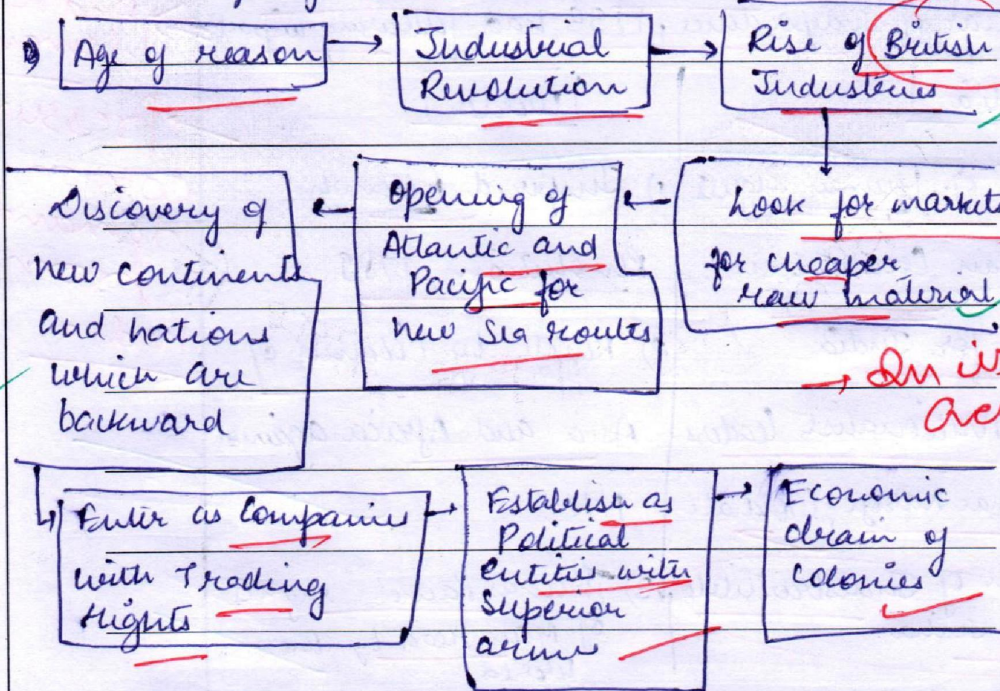 Age of reason
Industrial
Revolution
Rise of British
Industries
Look for markets
for cheaper
raw material
Opening of
Atlantic and
Pacific for
new Sea routes
Discovery of
new continents
and nations
which are
backward
Enter as Companies
with Trading
Rights
Establish as
Political
entities with
Superior
arms
Economic
drain of
colonies